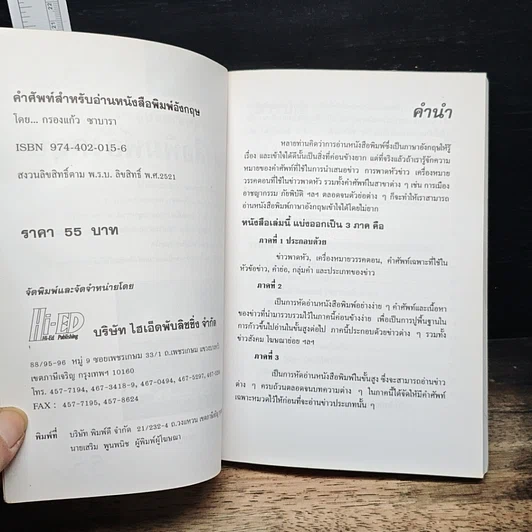 คำศัพท์สำหรับอ่านหนังสือพิมพ์อังกฤษ
โดย... กรองแก้ว ชาบารา
ISBN 974-402-015-6
สงวนลิขสิทธิ์ตาม พ.ร.บ. ลิขสิทธิ์ พ.ศ.2521
ราคา 55 บาท
จัดพิมพ์และจัดจำหน่ายโดย
Hi-ED
Hi-Ed Publishing
บริษัท ไฮเอ็ดพับลิชชิ่ง จำกัด
88/95-96 หมู่ 9 ซอยเพชรเกษม 33/1 ถ.เพชรเกษม
เขตภาษีเจริญ กรุงเทพฯ 10160
โทร. 457-7194, 467-3418-9, 467-0494, 467-5297,
FAX : 457-7195, 457-8624
พิมพ์ที่ บริษัท พิมพ์ดี จำกัด 21/232-4
นายเสริม พูนพนิช ผู้พิมพ์ผู้โฆษณา
คำนำ
หลายท่านคิดว่าการอ่านหนังสือพิมพ์ซึ่งเป็นภาษาอังกฤษให้รู้
เรื่อง และเข้าใจได้ดีนั้นเป็นสิ่งที่ค่อนข้างยาก แต่ที่จริงแล้วถ้าเรารู้จักความ
หมายของคำศัพท์ที่ใช้ในการนำเสนอข่าว การพาดหัวข่าว เครื่องหมาย
วรรคตอนที่ใช้ในข่าวพาดหัว รวมทั้งคำศัพท์ในสาขาต่าง ๆ เช่น การเมือง
อาชญากรรม ภัยพิบัติ ฯลฯ ตลอดจนตัวย่อต่าง ๆ ก็จะทำให้เราสามารถ
อ่านหนังสือพิมพ์ภาษาอังกฤษเข้าใจได้โดยไม่ยาก
หนังสือเล่มนี้ แบ่งออกเป็น 3 ภาค คือ
ภาคที่ 1 ประกอบด้วย
ข่าวพาดหัว, เครื่องหมายวรรคตอน, คำศัพท์เฉพาะที่ใช้ใน
หัวข้อข่าว, คำย่อ, กลุ่มคำ และประเภทของข่าว
ภาคที่ 2
เป็นการหัดอ่านหนังสือพิมพ์อย่างง่าย ๆ คำศัพท์และเนื้อหา
ของข่าวที่นำมารวบรวมไว้ในภาคนี้ค่อนข้างง่าย เพื่อเป็นการปูพื้นฐานใน
การก้าวขึ้นไปอ่านในขั้นสูงต่อไป ภาคนี้ประกอบด้วยข่าวต่าง ๆ รวมทั้ง
ข่าวสังคม โฆษณาย่อย ฯลฯ
ภาคที่ 3
เป็นการหัดอ่านหนังสือพิมพ์ในขั้นสูง ซึ่งจะสามารถอ่านข่าว
ต่าง ๆ ครบถ้วนตลอดจนบทความต่าง ๆ ในภาคนี้ได้จัดให้มีคำศัพท์
เฉพาะหมวดไว้ให้ก่อนที่จะอ่านข่าวประเภทนั้น ๆ